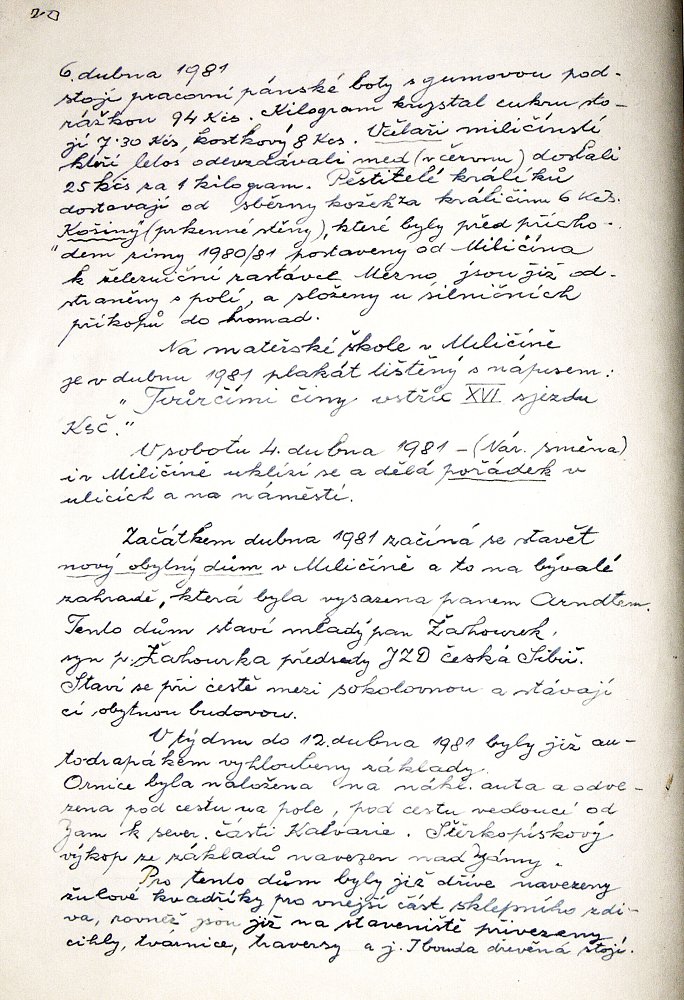 20
6. dubna 1981
stojí pracovní pánské boty s gumovou pod-
rážkou 94 Kčs. Kilogram krystal cukru sto-
jí 7·30 Kčs, kostkový 8 Kčs. Včelaři miličínští
kteří letos odevzdávali med (v červnu) dostali
25 kčs za 1 kilogram. Pěstitelé králíků
dostavají od sběrny kožek za králičinu 6 Kčs.
"Košiny" (prkenné stěny), které byly před přícho-
dem zimy 1980/81 postaveny od Miličína
k železniční zastávce Mezno, jsou již od-
straněny s polí, a složeny u silničních
příkopů do hromad.
Na mateřské škole v Miličíně
je v dubnu 1981 plakát tištěný s nápisem:
"Tvůrčími činy vstříc XVI sjezdu
KSČ."
V sobotu 4. dubna 1981 - (Nár. směna)
i v Miličíně uklízí se a dělá pořádek v
ulicích a na náměstí.
Začátkem dubna 1981 začíná se stavět
nový obytný dům v Miličíně a to na bývalé
zahradě, která byla vysazena panem Arndtem.
Tento dům staví mladý pan Žahourek,
syn p. Žahourka předsedy JZD česká Sibiř.
Staví se při cestě mezi sokolovnou a stávají
cí obytnou budovou.
V týdnu do 12. dubna 1981 byly již au-
todrapákem vyhloubeny základy.
Ornice byla naložena na nákl. auta a odve-
zena pod cestu na pole, pod cestu vedoucí od
Jam k sever. části Kalvarie. Štěrkopískový
výkop ze základů navezen nad Jámy.
Pro tento dům byly již dříve navezeny
žulové kvadříky pro vnější část sklepního zdi-
va, rovněž jsou již na staveniště přivezeny
cihly, tvarnice, traversy a j. I bouda dřevěná stojí.